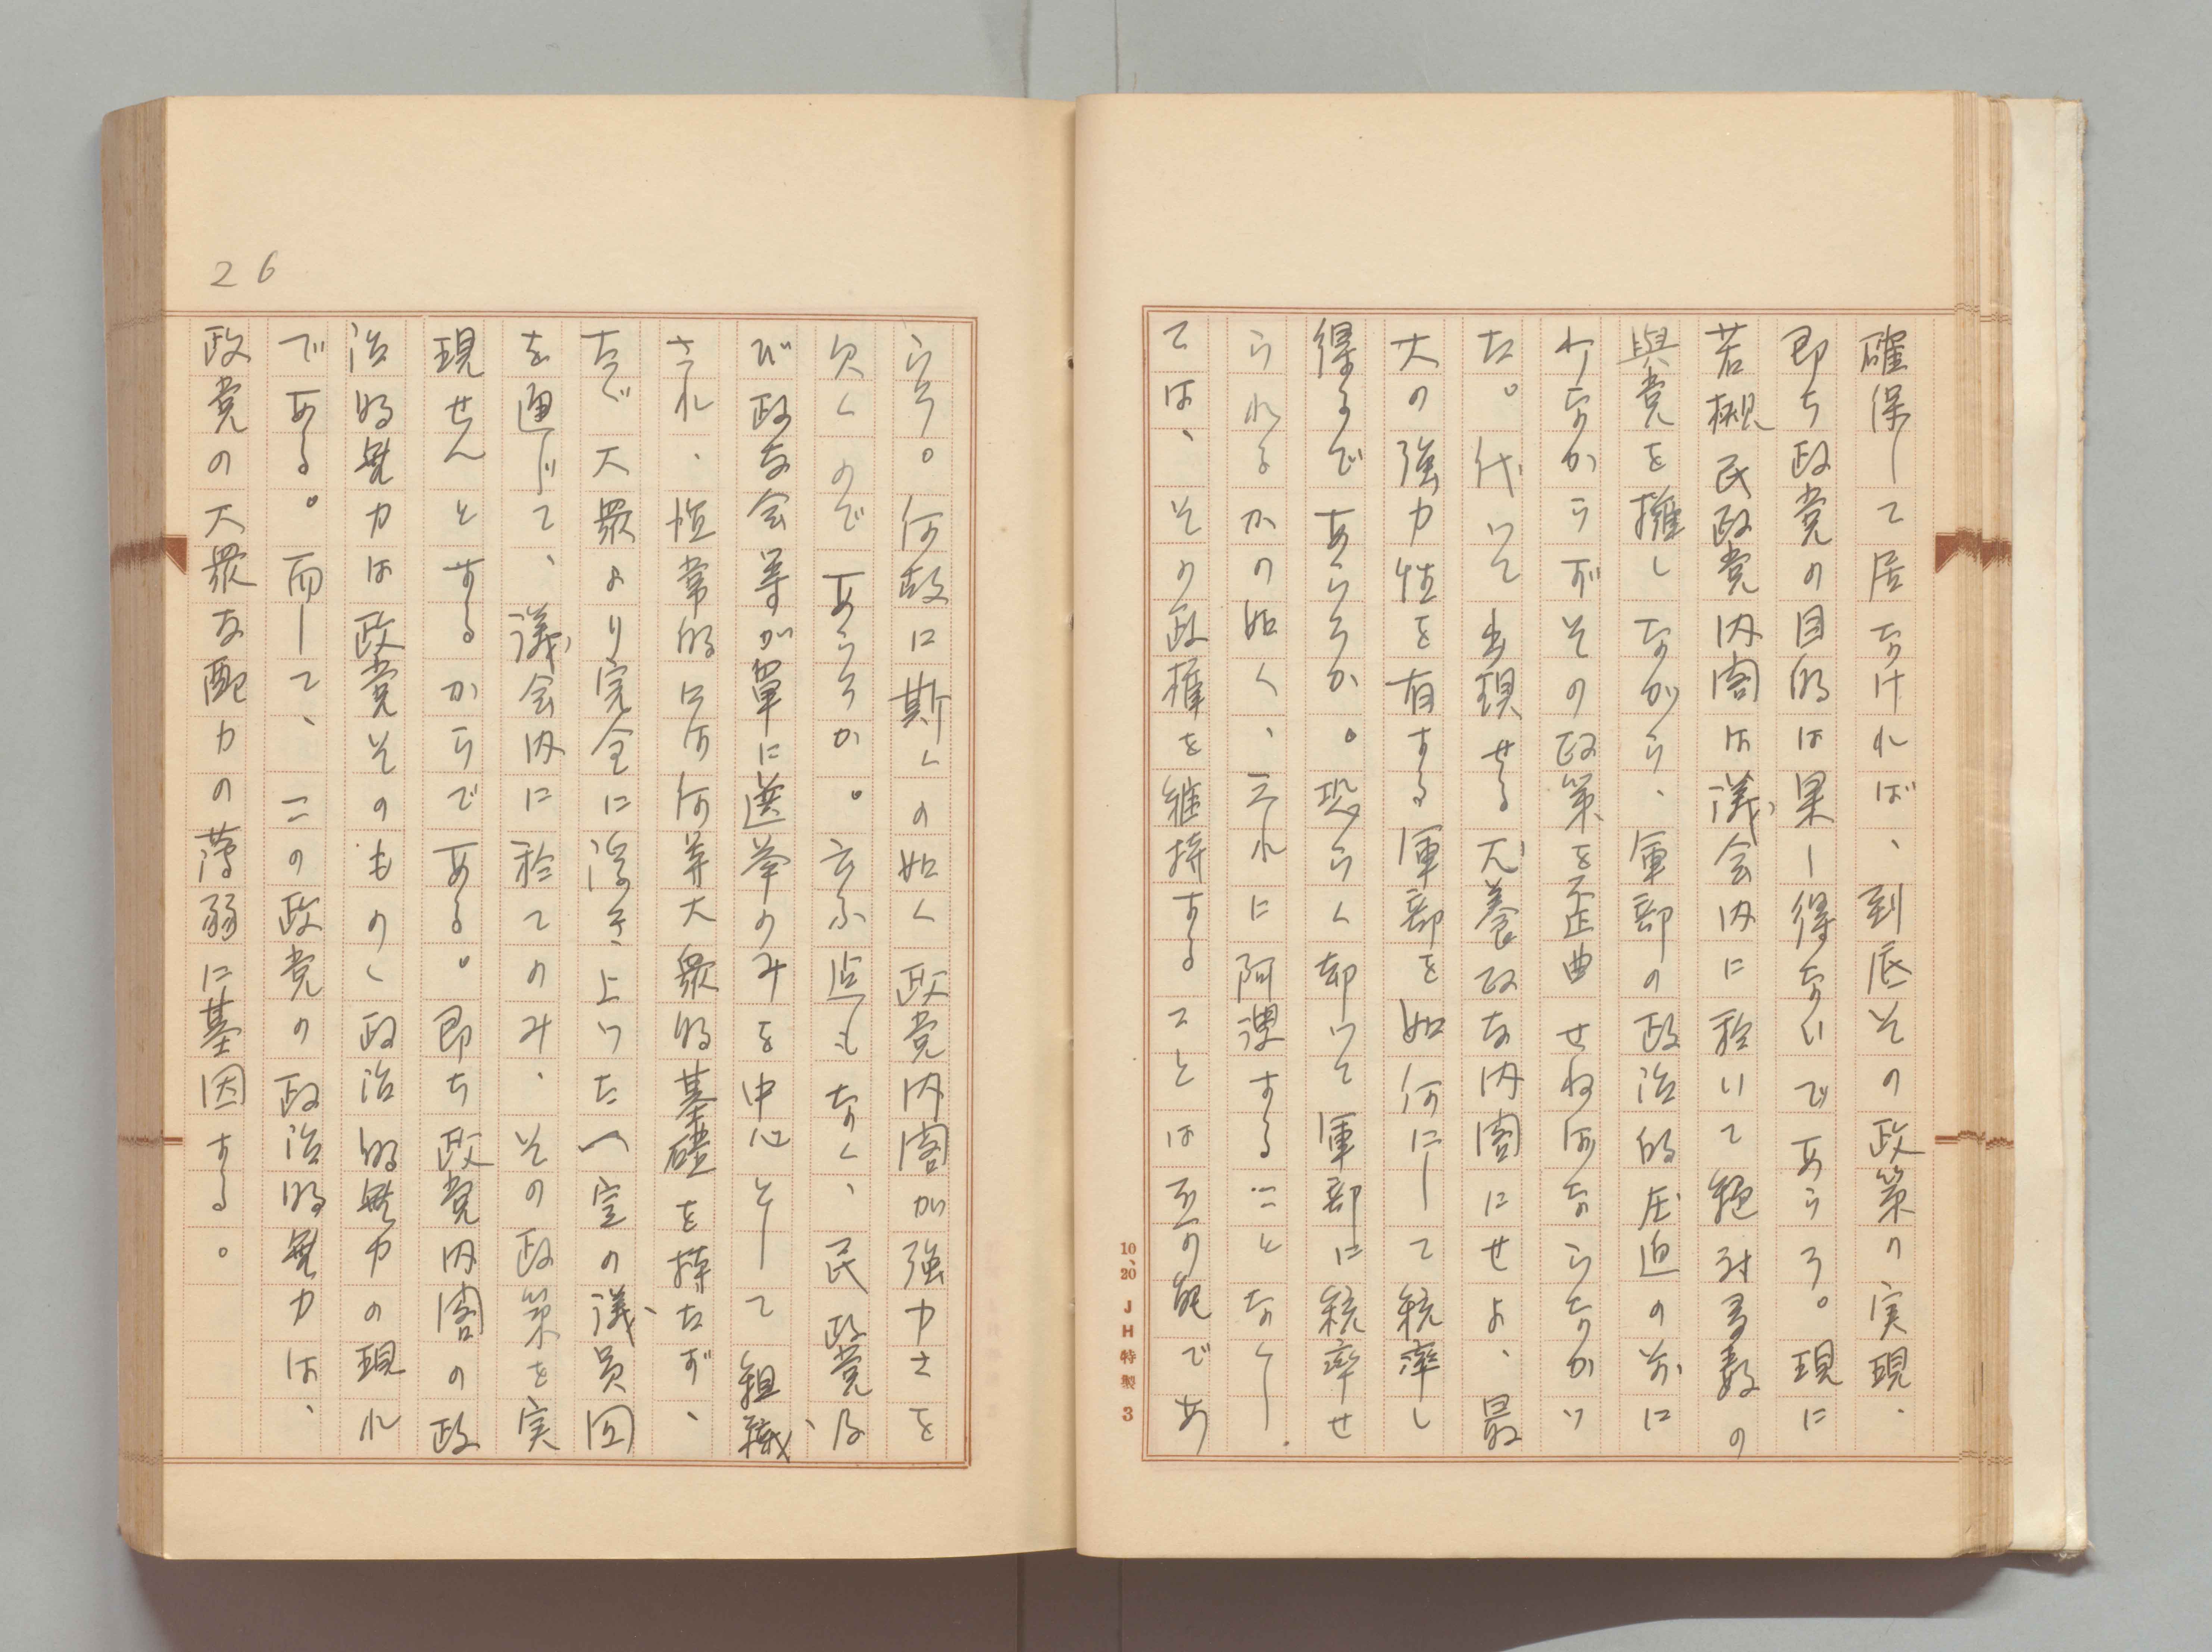 確保して居なければ、到底その政策の実現、
即ち政党の目的は果し得ないであらう。現に
若槻民政党内閣は議会内に於いて絶対多数の
與党を擁しながら、軍部の政治的圧迫の前に
わなかうずその政策を歪曲せねばならなかつ
た。代つて出現せる犬養政友内閣にせよ、最
大の強力性を有する軍部を如何にして統率し
得るであらうか。恐らく却つて軍部に統率せ
られるかの如く、これに阿諛することなくし
ては、その政権を維持することは不可能であ
10、20 JH特製 3
26
らう。何故に斯くの如く政党内閣が強力さを
欠くのであらうか。云ふ迄もなく、民政党及
び政友会等が単に選挙のみを中心として組織
され、恒常的には何等大衆的基礎を持たず、
たゞ大衆より完全に浮き上つた一定の議員団
を通じて、議会内に於てのみ、その政策を実
現せんとするからである。即ち政党内閣の政
治的無力は政党そのものゝ政治的無力の現れ
である。而して、この政党の政治的無力は、
政党の大衆支配力の薄弱に基因する。